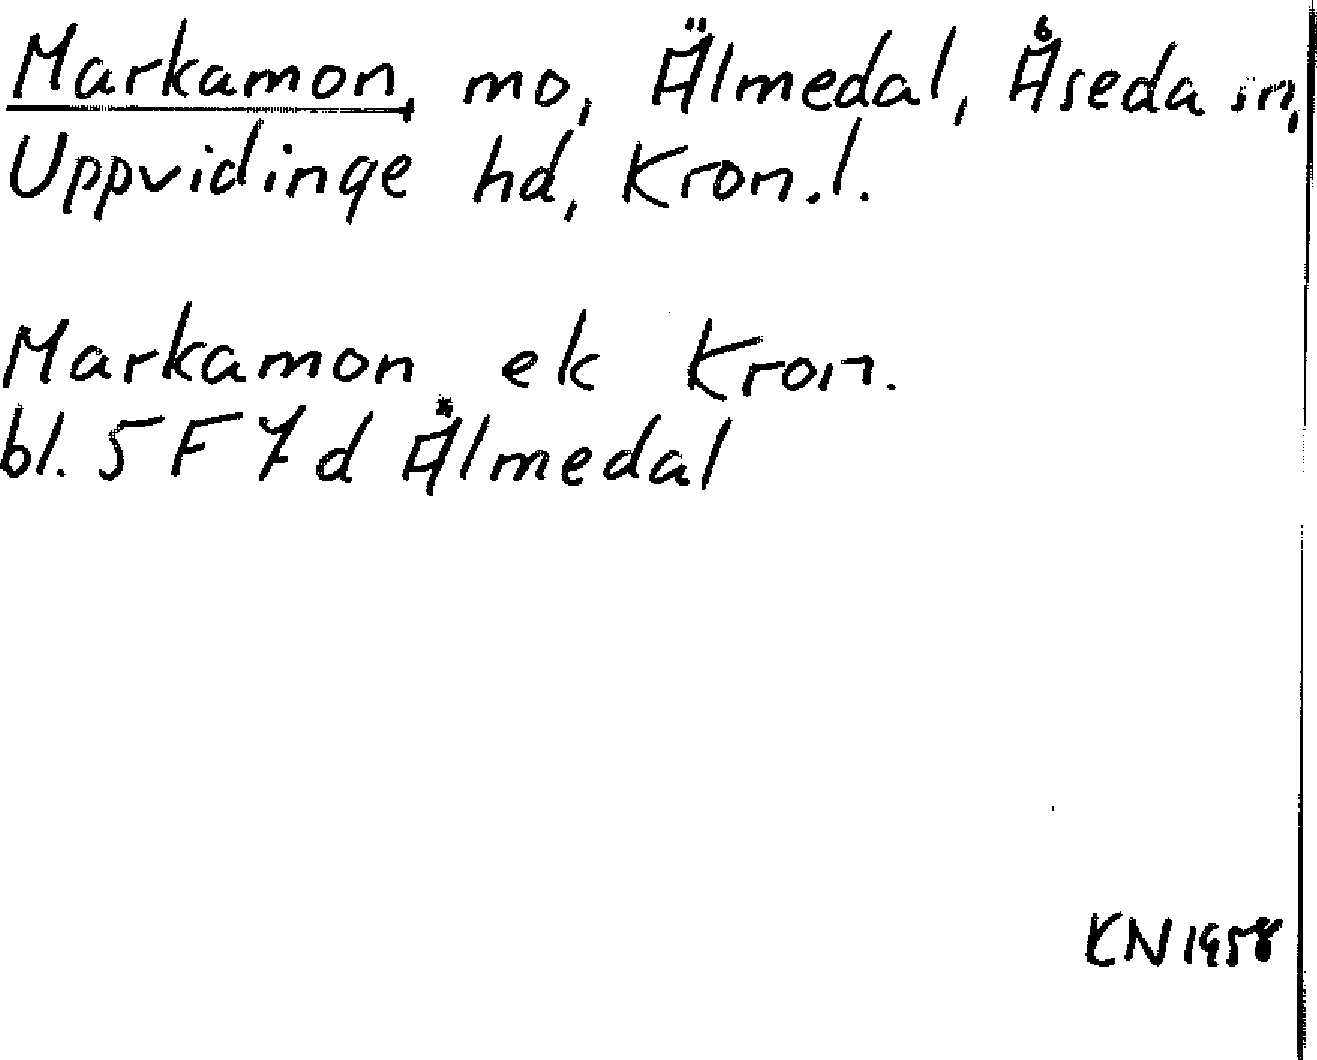 Markamon, mo, Älmedal, Åseda sn,
Uppvidinge hd, Kron.l.
Markamon ek Kron.
bl. 5 F 7 d Älmedal
KN 1958